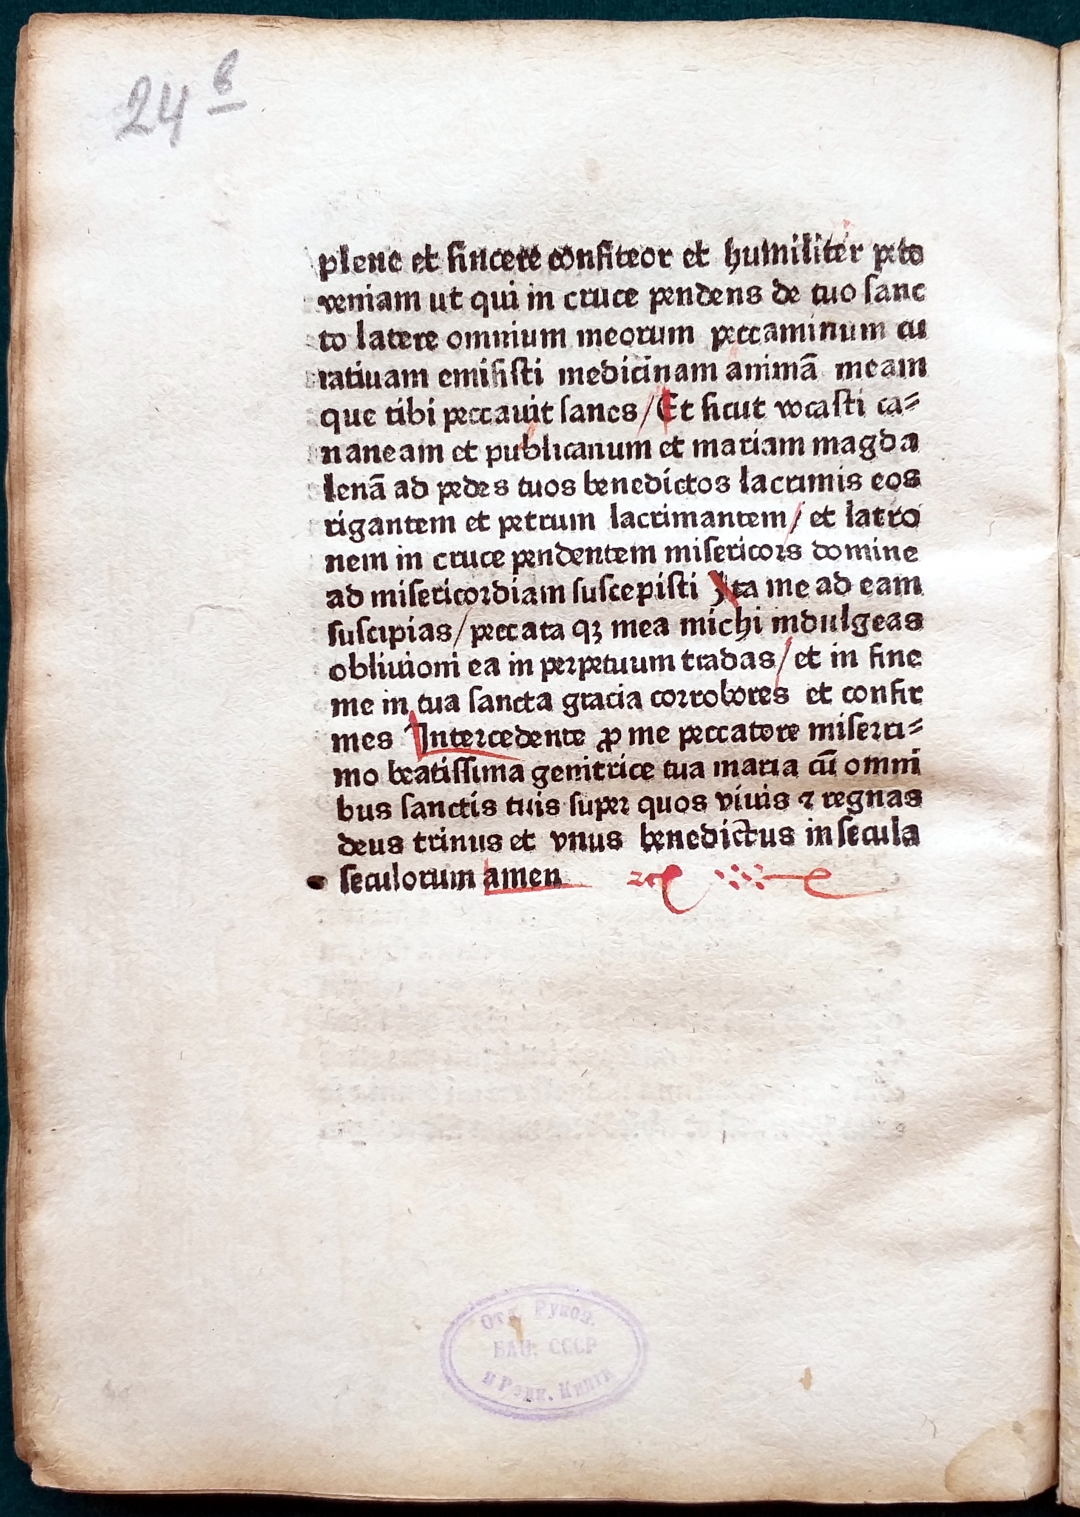 24 в
plene et sincere confiteor et humiliter peto
veniam ut qui in cruce pendens de tuo sanc
to latere omnium meorum peccaminum cu
ratiuam emisisti medicinam animā meam
que tibi peccauit sanes / Et sicut vocasti ca⸗
naneam et publicanum et mariam magda
lenā ad pedes tuos benedictos lacrimis eos
rigantem et petrum lacrimantem / et latro
nem in cruce pendentem misericors domine
ad misericordiam suscepisti Ita me ad eam
suscipias / peccata qꝫ mea michi indulgeas
obliuioni ea in perpetuum tradas / et in fine
me in tua sancta gracia corrobores et confir
mes Intercedente ꝓ me peccatore miserri⸗
mo beatissima genitrice tua maria cū omni
bus sanctis tuis super quos viuis ⁊ regnas
deus trinus et vnus benedictus in secula
seculorum amen
Отд. Рукоп.
БАН СССР
и Редк. Книги